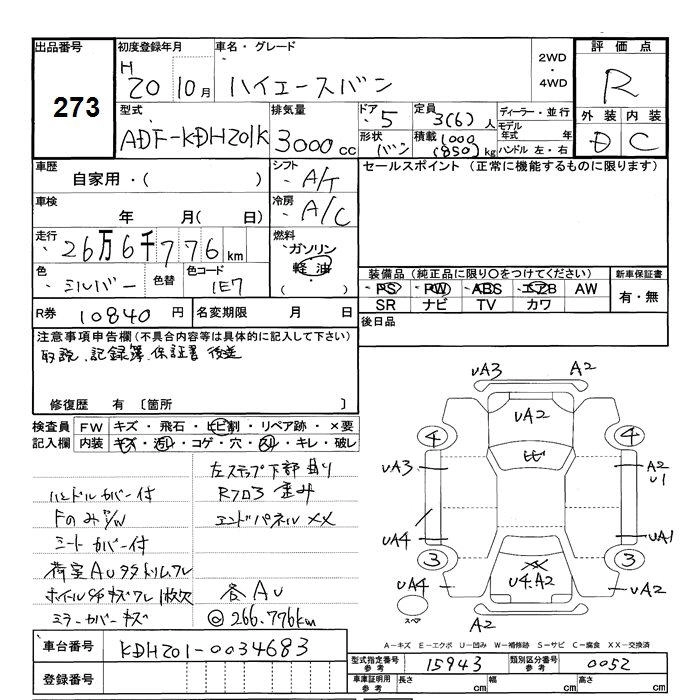 出品番号 初度登録年月 車名・グレード 2WD・4WD 評価点
273 H20 10月 ハイエースバン R
型式 排気量 ドア 定員 ディーラー・並行 外装 内装
ADF-KDH201K 3000cc 5 3(6)人 モデル年式 年 D C
形状 バン 積載 1000(850)kg ハンドル 左・右
車歴 シフト セールスポイント (正常に機能するものに限ります)
自家用・( ) A/T
車検 冷房
年 月( 日) A/C
走行 燃料
26万6千776km ガソリン
色 色替 色コード 軽油
シルバー 1E7 ( )
装備品(純正品に限り〇をつけてください) 新車保証書
PS PW ABS エアB AW 有・無
SR ナビ TV カワ
R券 10840円 名変期限 月 日
後日品
注意事項申告欄(不具合内容等は具体的に記入して下さい)
取説、記録簿、保証書 後送
修復歴 有 〔箇所 〕
検査員 FW キズ・飛石・ヒビ割・リペア跡・×要
記入欄 内装 キズ・汚レ・コゲ・穴・スレ・キレ・破レ
左ステップ下部曲り
ハンドルカバー付 Rフロア歪み
Fのみ P/W エンドパネル XX
シートカバー付
荷室AU タタミトリムワレ
各AU
ミラーカバーキズ ◎266.776km
車台番号 KDH201-0034683
登録番号
UA3 A2
UA2
4 ヒビ 4
UA3 A2
U1
UA4 UA1
3 XX 3
UA4 U4.A2 UA2
スペア A2
A-キズ E-エクボ U-凹み W-補修跡 S-サビ C-腐食 XX-交換済
型式指定番号 参考 15943 類別区分番号 参考 0052
車庫証明用 参考 長さ cm 幅 cm 高さ cm